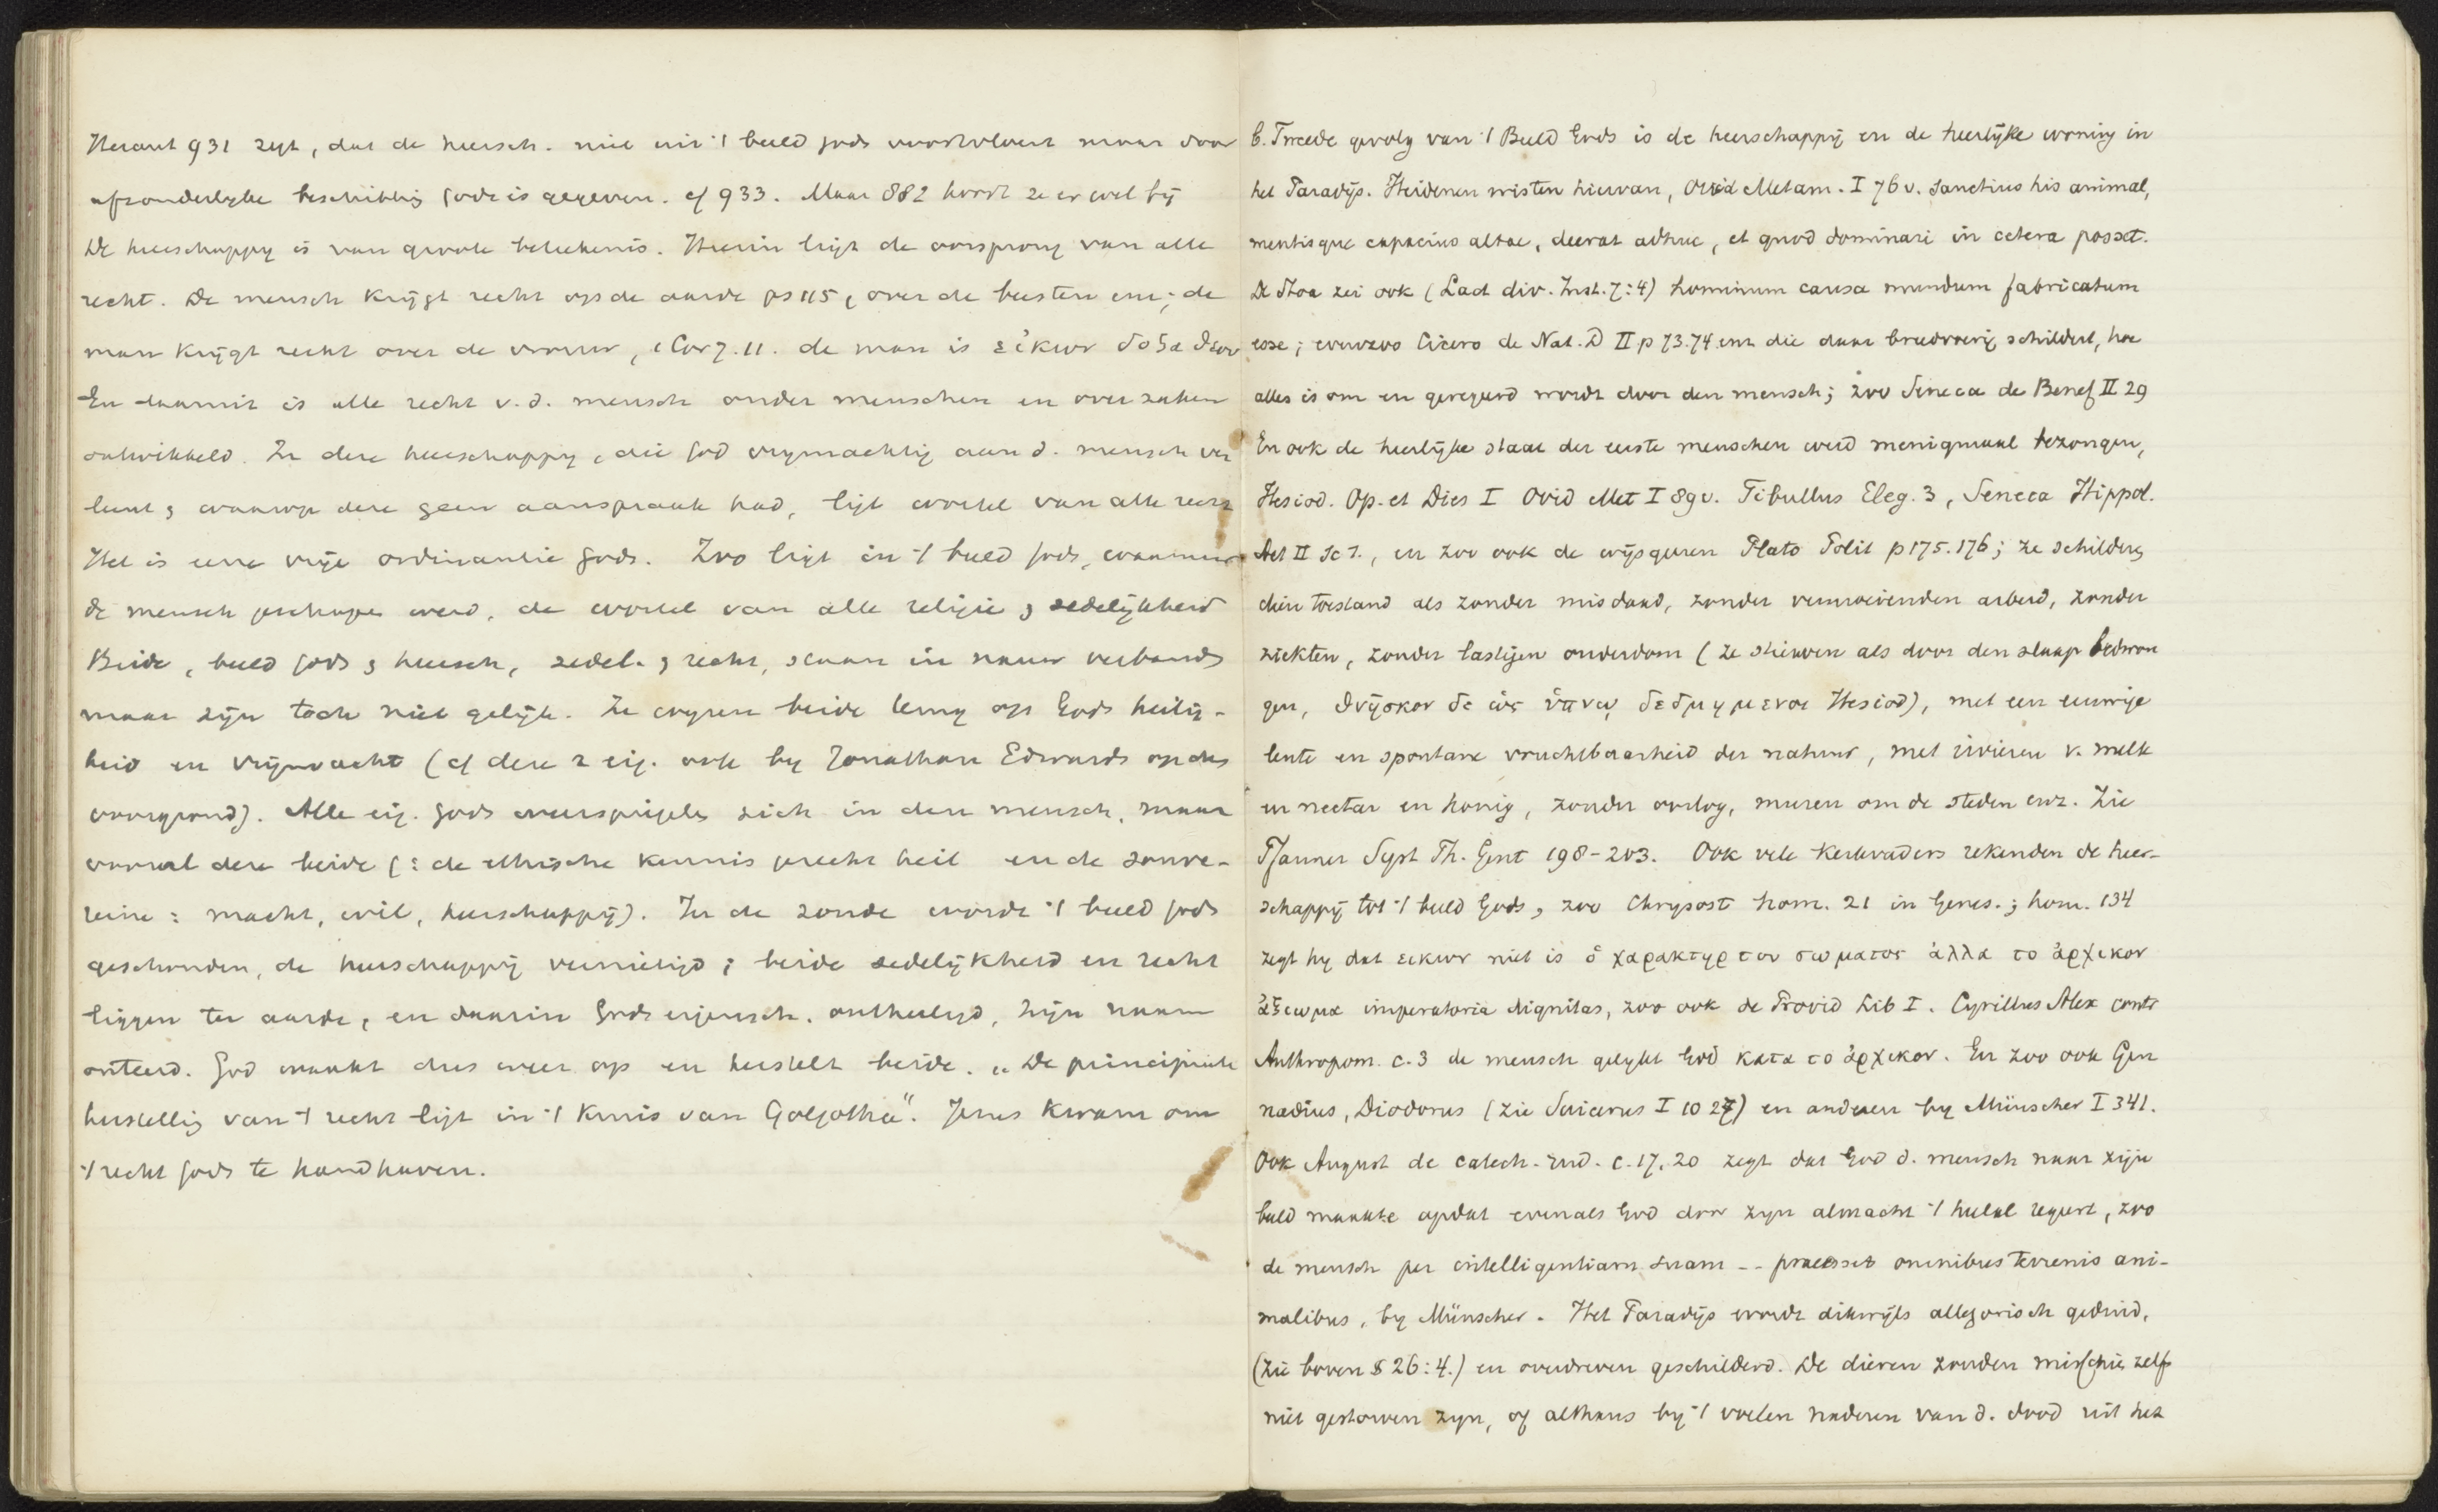 Heraut 931 zegt, dat de heersch. niet uit 't beeld Gods voortvloeit maar door
afzonderlyke beschikking Gods is gegeven. cf 933. Maar 882 hoort ze er wel bij
De heerschappy is van groote beteekenis. Hierin ligt de oorsprong van alle
recht. De mensch krijgt recht op de aarde ps 115, over de beesten enz; de
man krijgt recht over de vrouw, 1 Cor 7. 11. de man is εἰκων δοξα θεου
En daaruit is alle recht v. d. mensch onder menschen en over zaken
ontwikkeld. In deze heerschappy, die God vrymachtig aan d. mensch ver
leent & waarop deze geen aanspraak had, ligt wortel van alle recht
Het is eene vrije ordinantie Gods. Zoo ligt in 't beeld Gods, waarnaar
de mensch geschapen werd, de wortel van alle religie & zedelijkheid
Beide, beeld Gods & heersch, zedel. & recht, staan in nauw verband
maar zijn toch niet gelijk. Ze wyzen beide terug op Gods heilig-
heid en vrijmacht (cf deze 2 eig. ook by Jonathan Edwards op den
voorgrond). Alle eig. Gods weerspiegelen zich in den mensch, maar
vooral deze beide (: de ethische kennis gerecht heil en de souve-
reine: macht, wil, heerschappij). In de zonde wordt 't beeld Gods
geschonden, de heerschappij vernietigd; beide zedelijkheid en recht
liggen ter aarde, en daarin Gods eigensch. ontheiligd, zijn naam
onteerd. God maakt dus weer op en herstelt beide. „De principieele
herstelling van 't recht ligt in 't kruis van Golgotha". Jezus kwam om
't recht Gods te handhaven.
b. Tweede gevolg van 't Beeld Gods is de heerschappij en de heerlijke woning in
het Paradijs. Heidenen wisten hiervan, Ovid Metam. I 76 v. Sanctius his animal,
mentisque capacius altae, deerat adhuc, et quod dominari in cetera posset.
De Stoa zei ook (Lact div. Inst. 7:4) hominum causa mundum fabricatum
esse; evenzoo Cicero de Nat. D II p 73.74 enz die daar breedvoerig schildert, hoe
alles is om en geregeerd wordt door den mensch; zoo Seneca de Benef II 29
En ook de heerlijke staat der eerste menschen werd menigmaal bezongen,
Hesiod. Op. et Dies I Ovid Met I 89 v. Tibullus Eleg. 3, Seneca Hippol.
Act II Sc 1., en zoo ook de wijsgeeren Plato Polit p 175.176; ze schilderen
dien toestand als zonder misdaad, zonder vermoeienden arbeid, zonder
ziekten, zonder lastigen ouderdom (ze stierven als door den slaap bedwon
gen, θνῃσκον δε ὡς ὑπνῳ δεδμημενοι Hesiod), met een eeuwige
lente en spontane vruchtbaarheid der natuur, met rivieren v. melk
en nectar en honig, zonder oorlog, muren om de steden enz. Zie
Pfanner Syst Th. Gent 198-203. Ook vele kerkvaders rekenden de heer-
schappij tot 't beeld Gods, zoo Chrysost hom. 21 in Genes.; hom. 134
zegt hy dat εικων niet is ὁ χαρακτηρ του σωματος ἀλλα το ἀρχικον
ἀξιωμα imperatoria dignitas, zoo ook de Provid Lib I. Cyrillus Alex contr
Anthropom. c. 3 de mensch gelykt God κατα το ἀρχικον. En zoo ook Gen
nadius, Diodorus (zie Suicerus I 1027) en anderen by Münscher I 341.
Ook August de catech. rud. c. 17, 20 zegt dat God d. mensch naar zijn
beeld maakte opdat evenals God door zyn almacht 't heelal regeert, zoo
de mensch per intelligentiam suam -- praeesset omnibus terrenis ani-
malibus, by Münscher. Het Paradijs wordt dikwijls allegorisch geduid,
(zie boven § 26:4.) en overdreven geschilderd. De dieren zouden misschien zelfs
niet gestorven zyn, of althans by 't voelen naderen van d. dood uit het